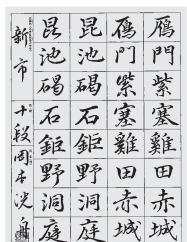 鴈門紫塞雞田赤城
鴈門紫塞雞田赤城
昆池碣石鉅野洞庭
昆池碣石鉅野洞庭
新市 十段 岡本洸舟